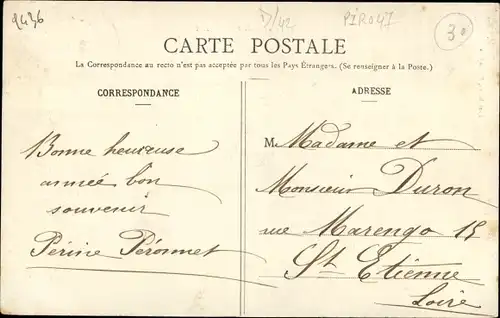 2436
D/42
PIR041
30
CARTE POSTALE
La Correspondance au recto n'est pas acceptée par tous les Pays Étrangers. (Se renseigner à la Poste.)
CORRESPONDANCE
Bonne heureuse
année bon
souvenir
Périne Péronnet
ADRESSE
M. Madame et
Monsieur Duron
rue Marengo 15
St Etienne
Loire